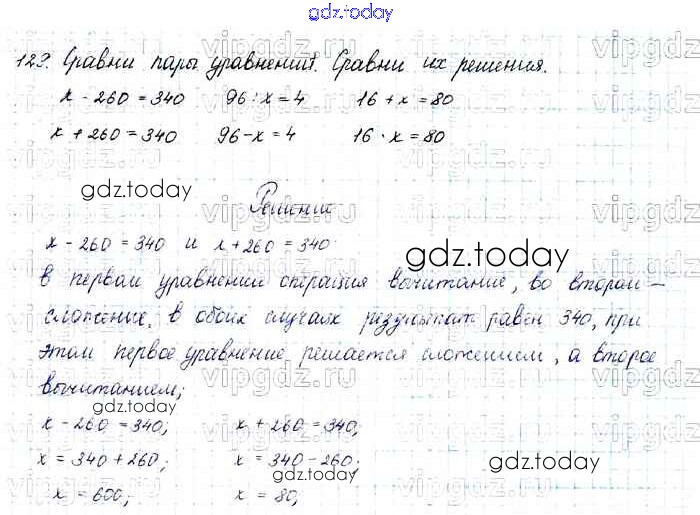 gdz.today
123. Сравни пары уравнений. Сравни их решения.
x - 260 = 340 96 : x = 4 16 + x = 80
x + 260 = 340 96 - x = 4 16 · x = 80
gdz.today
Решение
x - 260 = 340 и x + 260 = 340
gdz.today
в первом уравнении операция вычитание, во втором -
сложение, в обоих случаях результат равен 340, при
этом первое уравнение решается сложением, а второе
вычитанием;
gdz.today
x - 260 = 340; x + 260 = 340;
x = 340 + 260; x = 340 - 260;
gdz.today
x = 600; x = 80;